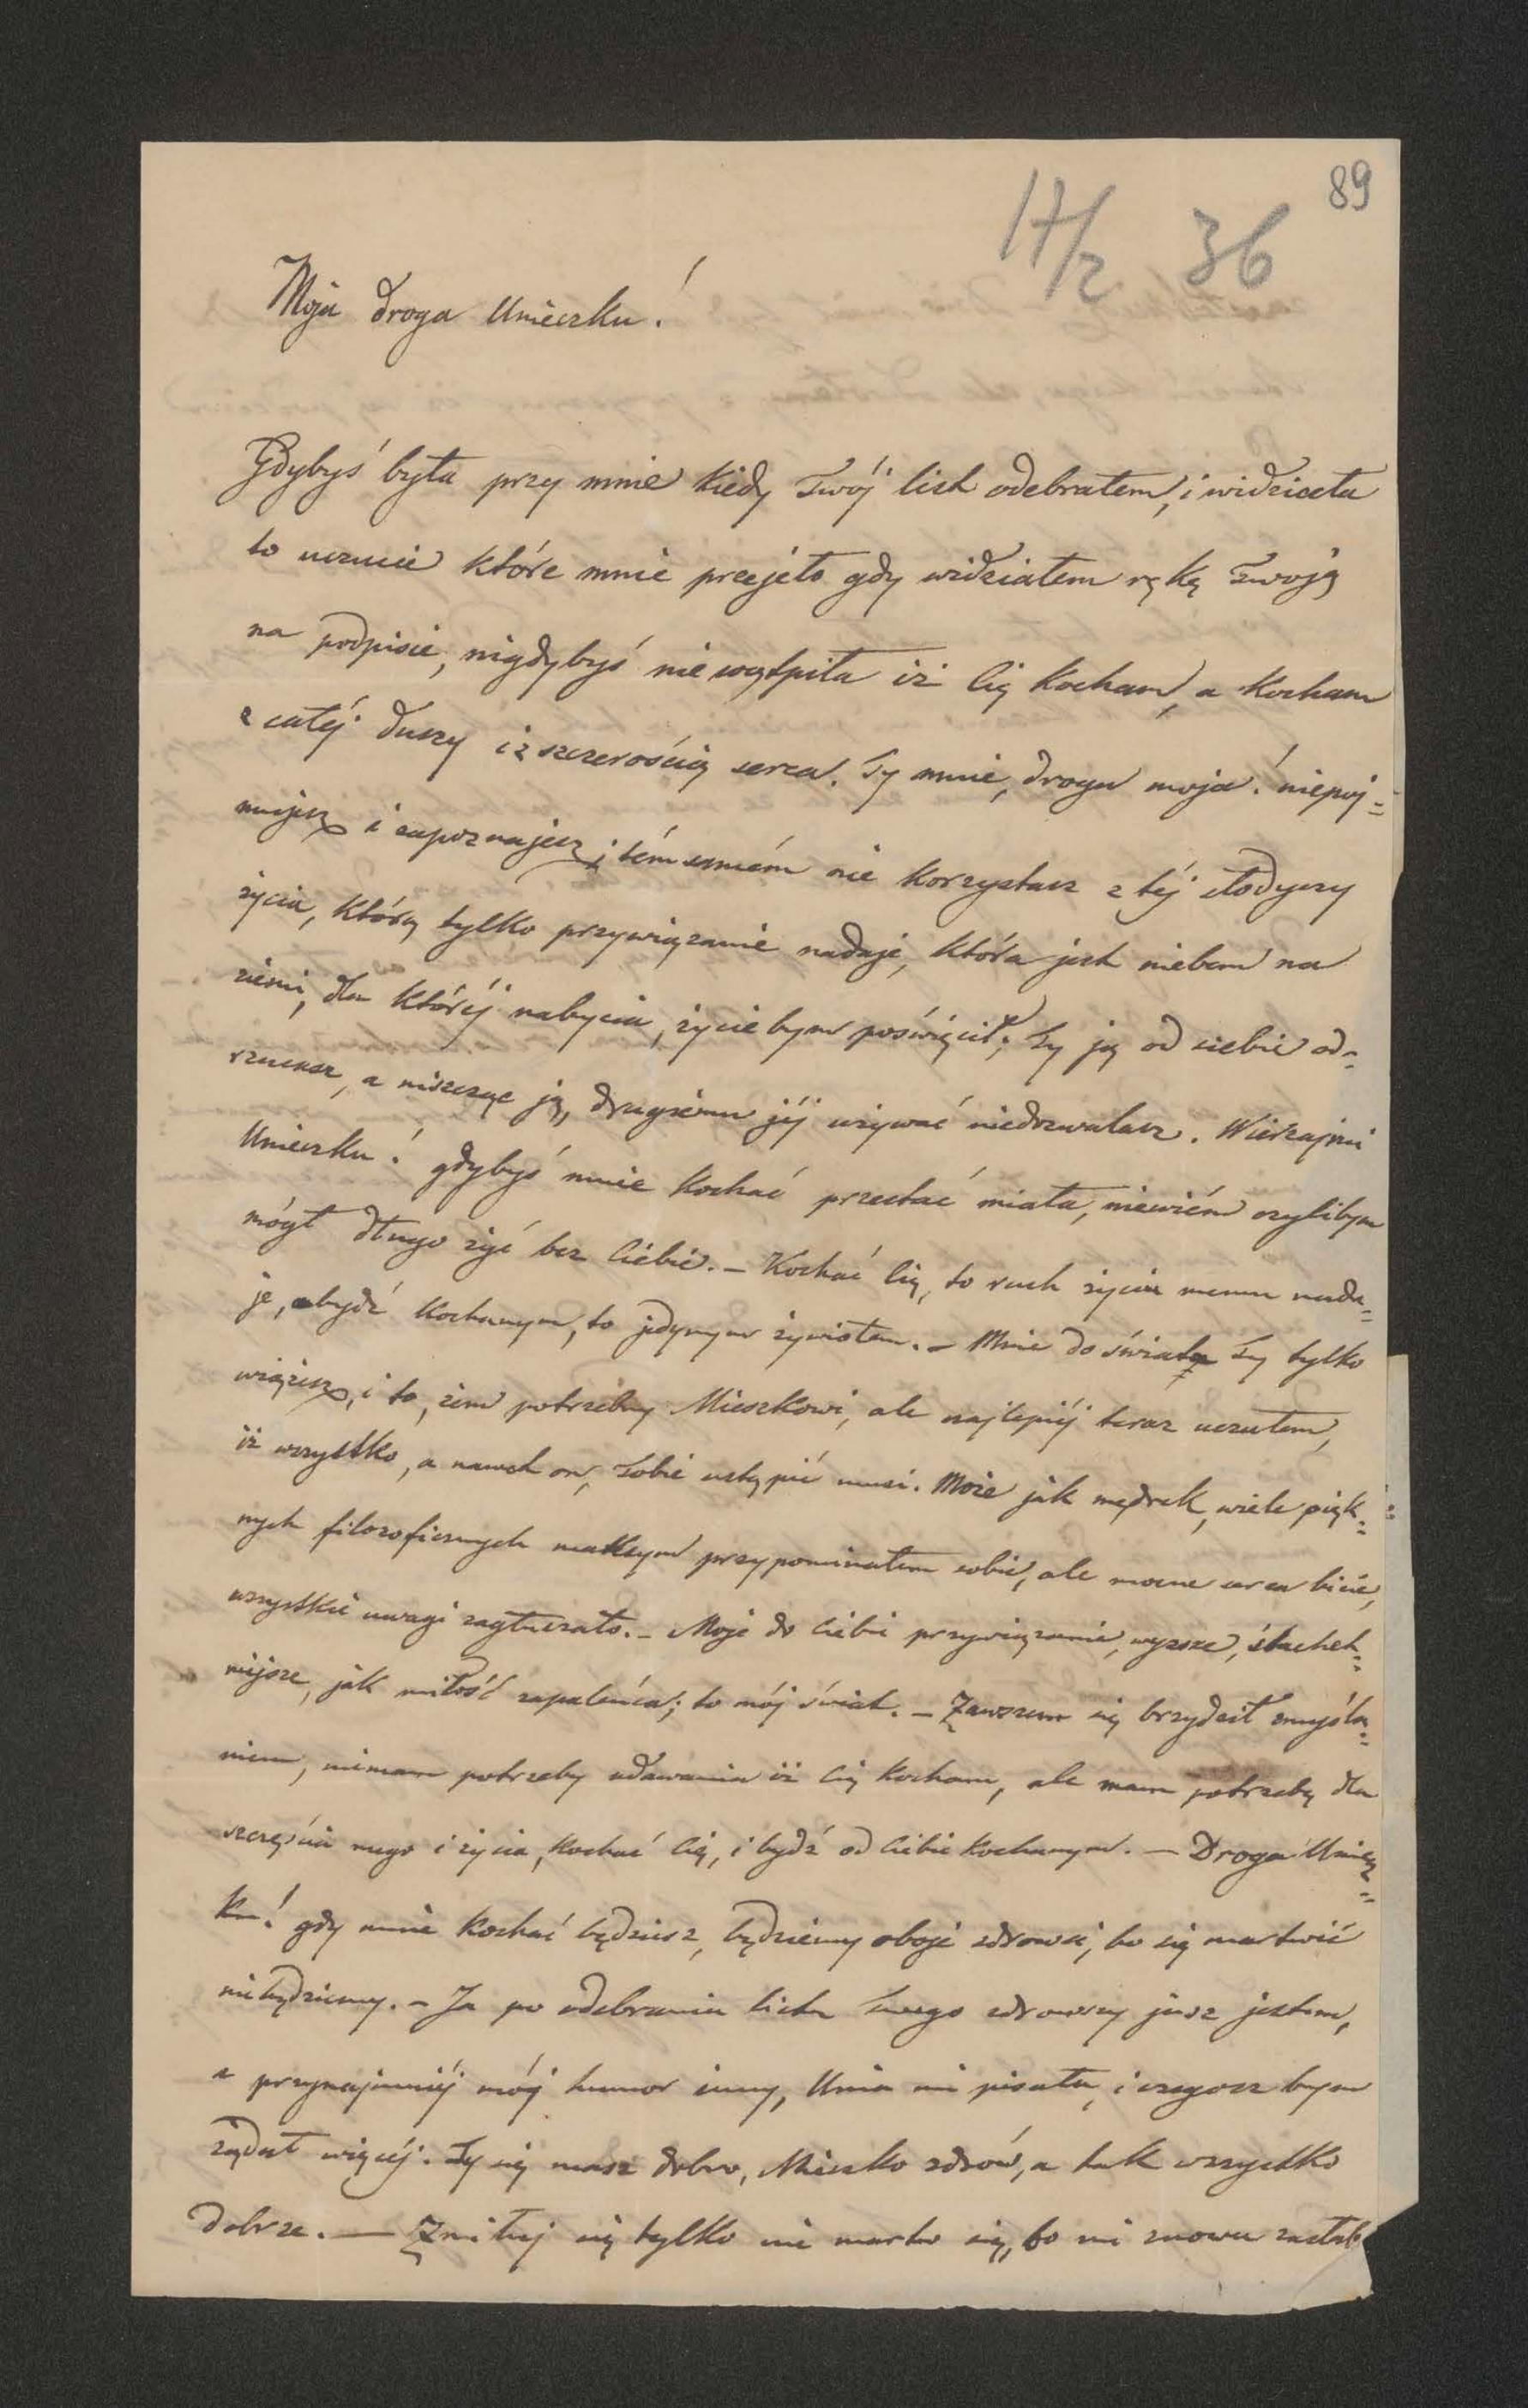 89
17/2 36
Moja droga Unieczku!
Gdybyś była przy mnie kiedy Twój list odebrałem, i widziała
to uczucie które mnie przejęło gdy widziałem rękę Twoję
na podpisie, nigdybyś nie wątpiła iż Cię kocham, a kocham
z całéj duszy i z szczerością serca. Ty mnie, droga moja! niepoj=
mujesz i zapoznajesz, i tém samém nie korzystasz z téj słodyczy
życia, którą tylko przywiązanie nadaje, która jest niebem na
ziemi, dla któréj nabycia, życie bym poświęcił; Ty ją od siebie od=
rzucasz, a niszcząc ją, drugiemu jéj używać niedozwalasz. Wierzajmi
Unieczku! gdybyś mnie kochać przestać miała, niewiém czylibym
mógł długo żyć bez Ciebie. – Kochać Cię, to ruch życiu memu nada=
je, bydź kochanym, to jedynym żywiołem. – Mnie do świata Ty tylko
wiążesz, i to, żem potrzebny Mieszkowi, ale najlepiéj teraz uczułem,
iż wszystko, a nawet on, Tobie ustąpić musi. Może jak mędrek, wiele pięk=
nych filozoficznych maksym przypominałem sobie, ale mocne serca bicie,
wszystkie uwagi zagłuszało. – Moje do Ciebie przywiązanie, wyższe, ślachet=
niejsze, jak miłość zapaleńca; to mój świat. – Zawszem się brzydził zmyśla=
niem, niemam potrzeby udawania iż Cię kocham, ale mam potrzebę dla
szczęścia mego i życia, kochać Cię, i bydź od Ciebie kochanym. – Droga Uniecz=
ku! gdy mnie kochać będziesz, będziemy oboje zdrowi, bo się martwić
niebędziemy. – Ja po odebraniu listu Twego zdrowszy jusz jestem,
a przynajmniéj mój humor inny, Unia mi pisała, i czegosz bym
żądał więcéj. Ty się masz dobrze, Mieszko zdrów, a tak wszystko
dobrze. — Zmiłuj się tylko nie martw się, bo mi znowu zasłab